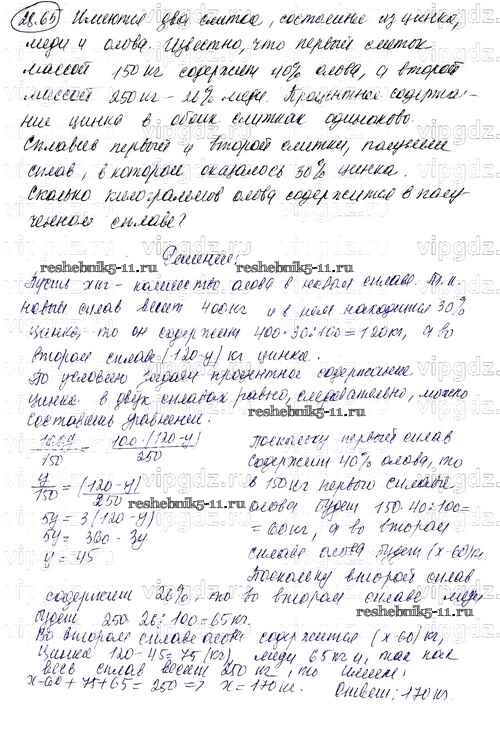 28.65 Имеются два слитка, состоящие из цинка,
меди и олова. Известно, что первый слиток
массой 150 кг содержит 40% олова, а второй
массой 250 кг - 26% меди. Процентное содержа-
ние цинка в обоих слитках одинаково.
Сплавив первый и второй слитки, получили
сплав, в котором оказалось 30% цинка.
Сколько килограммов олова содержится в полу-
ченном сплаве?
Решение:
reshebnik5-11.ru
reshebnik5-11.ru
Пусть x кг - количество олова в новом сплаве. Т.к.
новый сплав весит 400 кг и в нем находится 30%
цинка, то он содержит 400·30:100=120 кг, а во
втором сплаве (120-y) кг цинка.
По условию задачи процентное содержание
цинка в двух сплавах равно, следовательно, можно
составить уравнение:
reshebnik5-11.ru
100y/150 = 100·(120-y)/250
y/150 = (120-y)/250
reshebnik5-11.ru
5y = 3(120-y)
5y = 360-3y
y = 45
Поскольку первый сплав
содержит 40% олова, то
в 150 кг первого сплава
олова будет 150·40:100=
=60 кг, а во втором
сплаве олова будет (x-60) кг.
Поскольку второй сплав
содержит 26%, то во втором сплаве меди
будет 250·26:100=65 кг.
reshebnik5-11.ru
Во втором сплаве олова содержится (x-60) кг,
цинка 120-45=75 (кг), меди 65 кг и, так как
весь сплав весит 250 кг, то имеем:
x-60+75+65=250 => x=170 кг. Ответ: 170 кг.